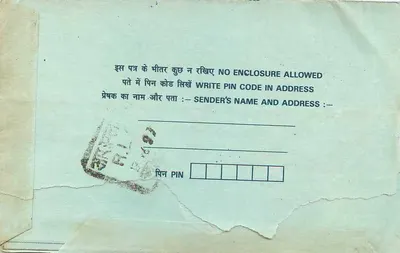 इस पत्र के भीतर कुछ न रखिए NO ENCLOSURE ALLOWED
पते में पिन कोड लिखें WRITE PIN CODE IN ADDRESS
प्रेषक का नाम और पता :— SENDER'S NAME AND ADDRESS :—
पिन PIN